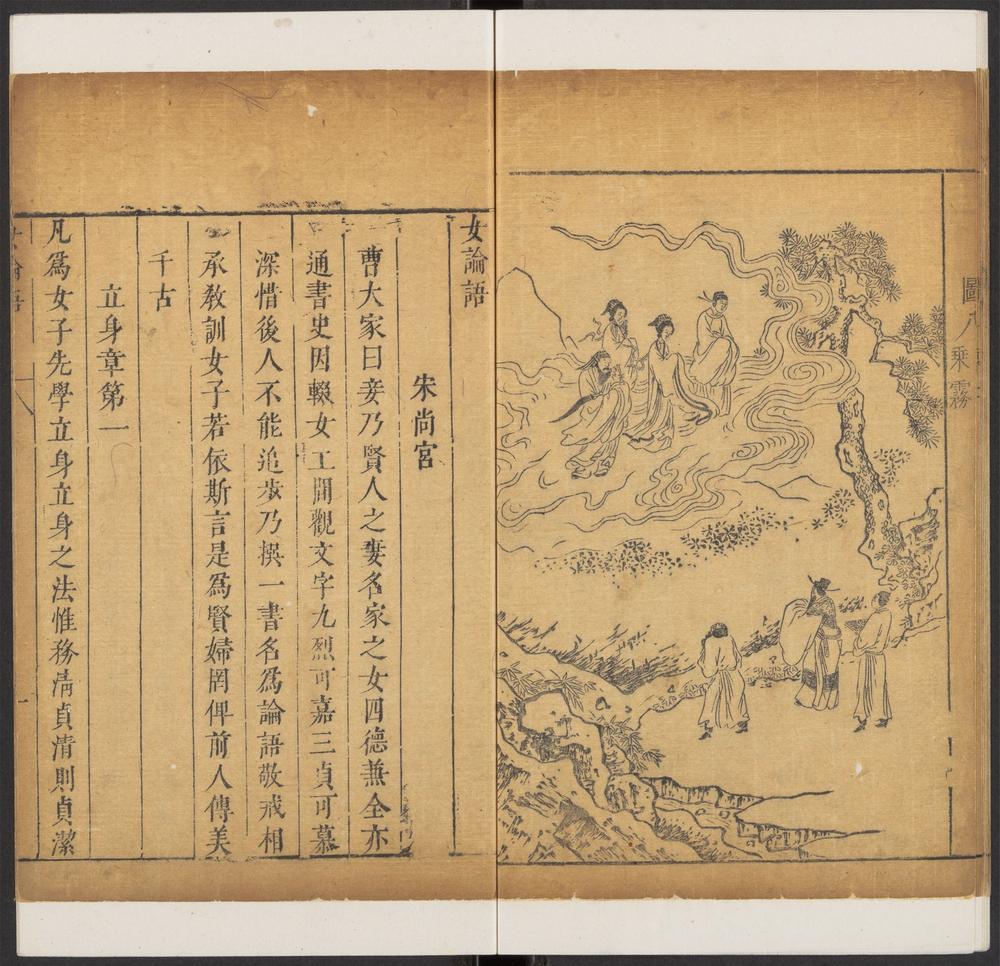 圖八 乘霧
女論語
朱尚宮
曹大家曰妾乃賢人之妻名家之女四德兼全亦
通書史因輟女工間觀文字九烈可嘉三貞可慕
深惜後人不能追步乃撰一書名為論語敬戒相
承教訓女子若依斯言是為賢婦罔俾前人傳美
千古
立身章第一
凡為女子先學立身立身之法惟務清貞清則貞潔